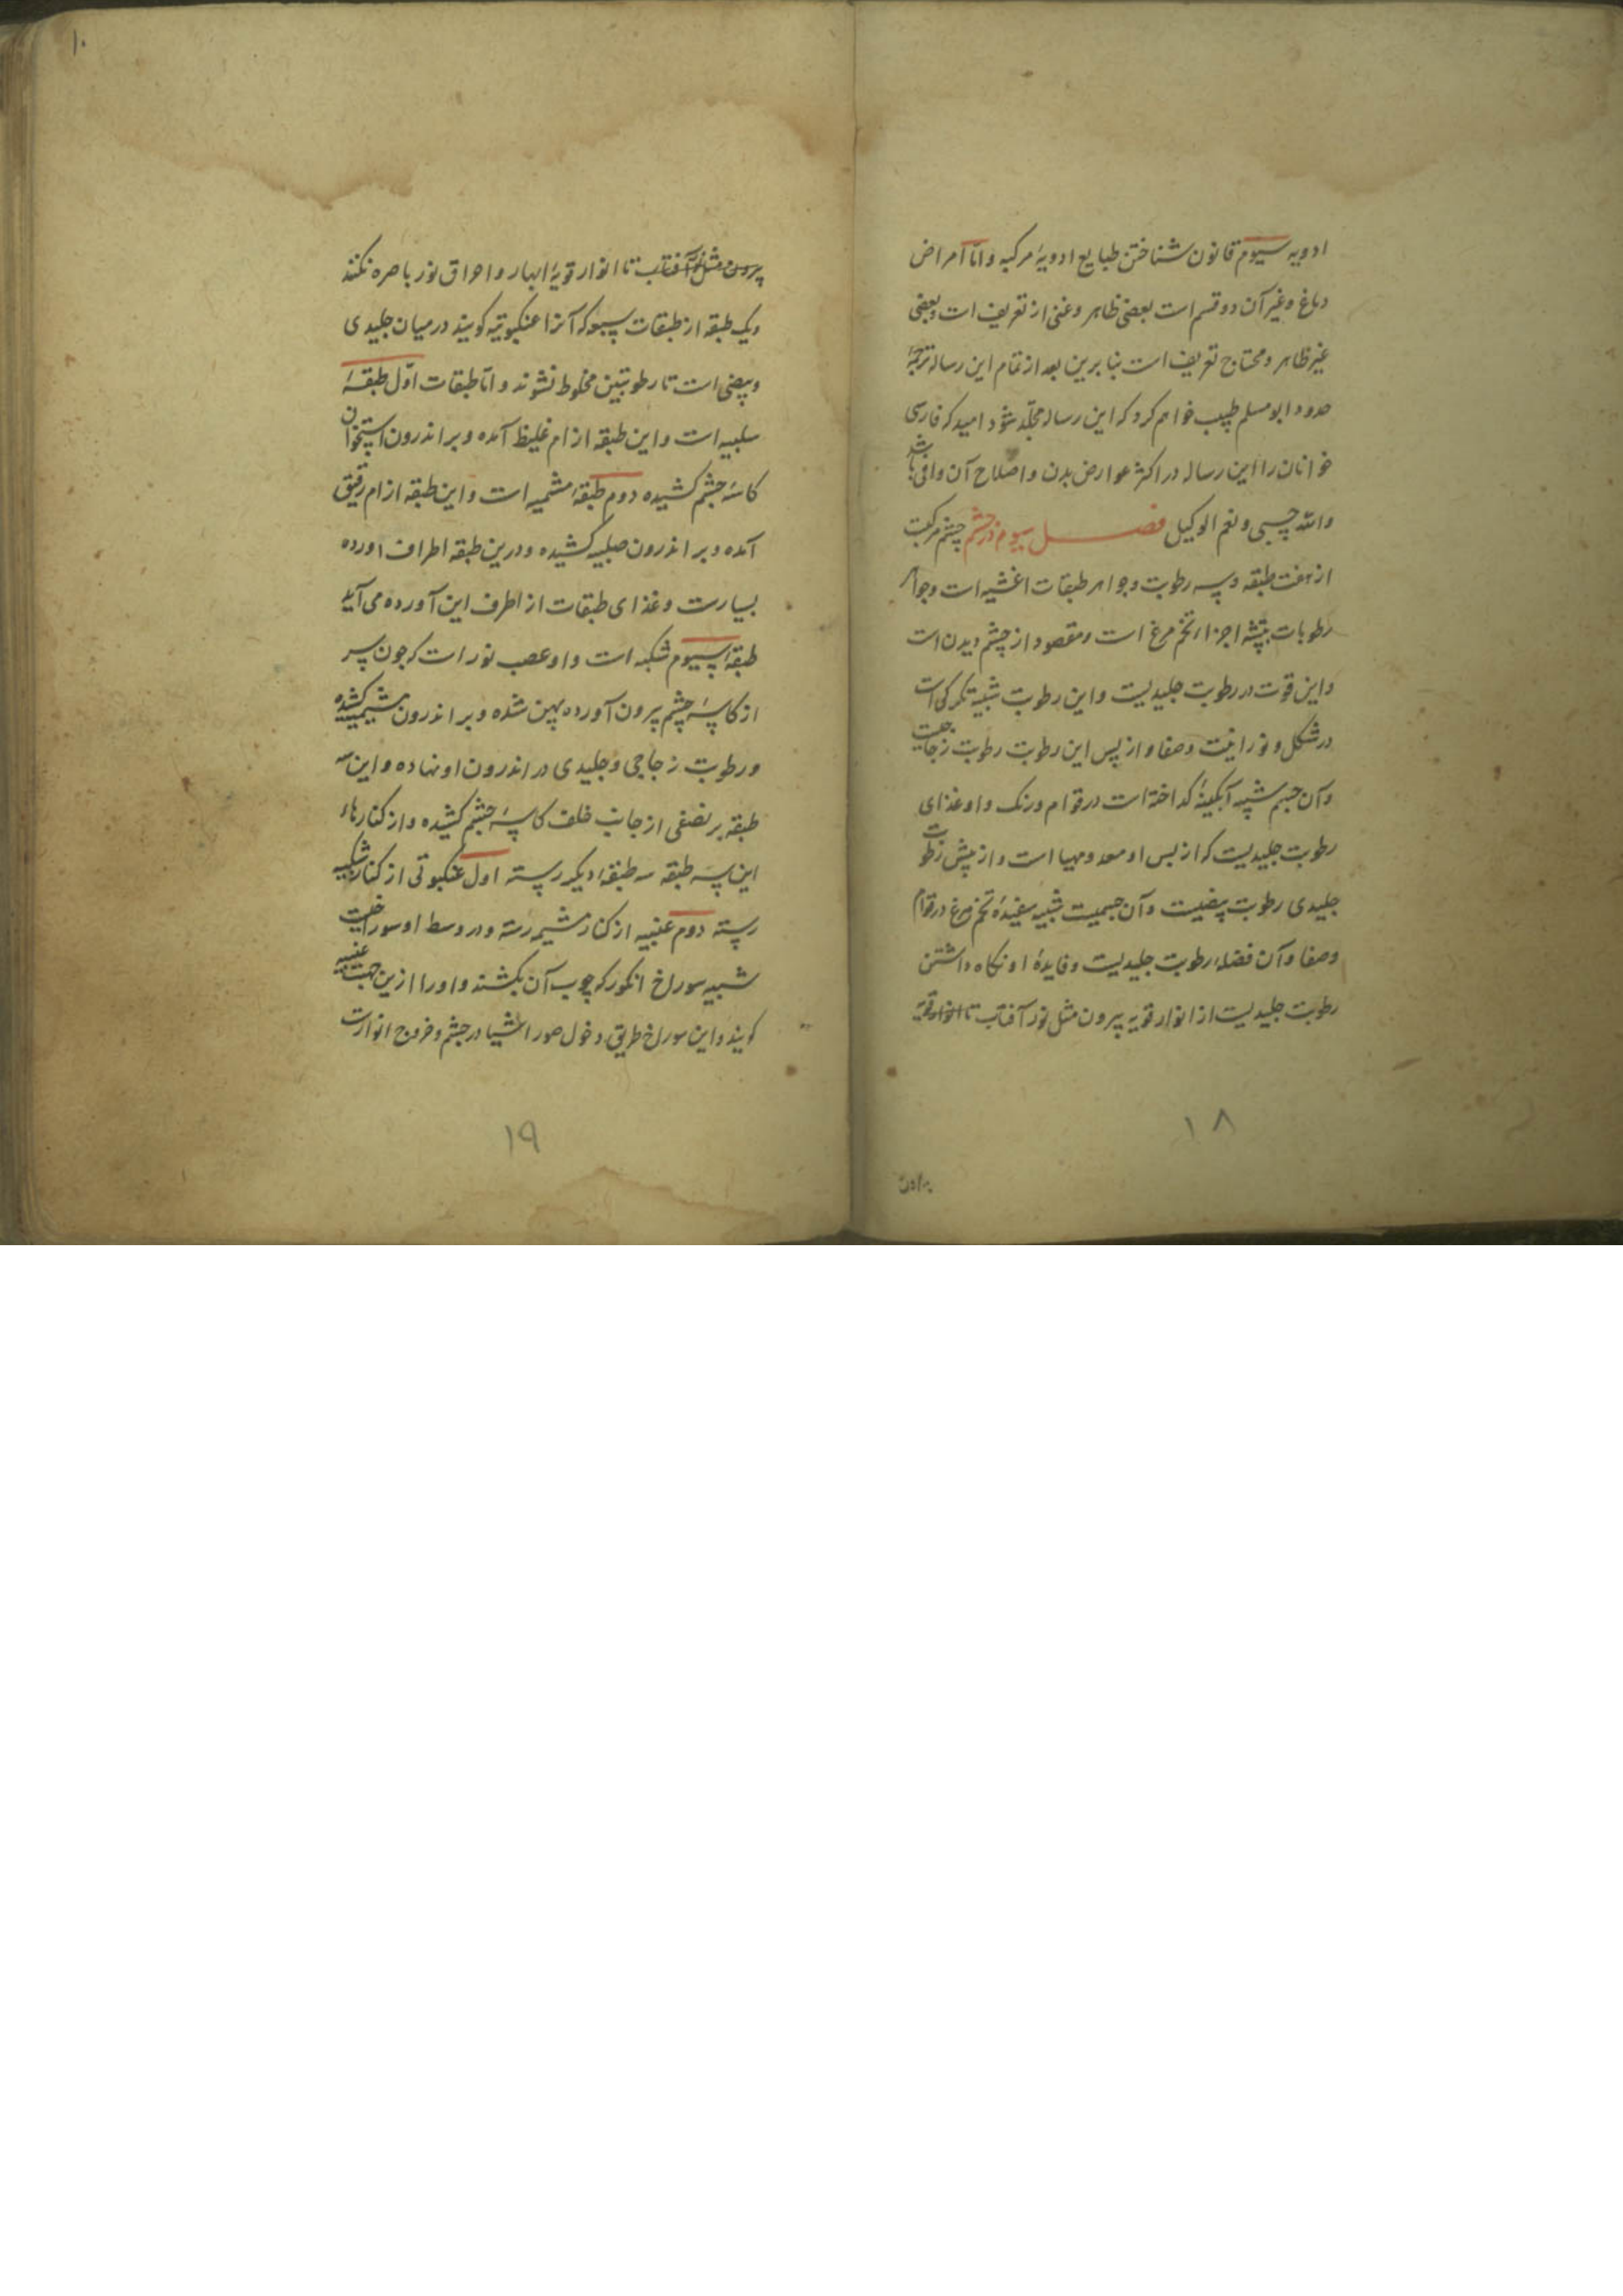 ادویه سیوم قانون شناختن طبایع ادویهٔ مرکبه و امّا امراض
دماغ و غیر آن دو قسم است بعضی ظاهر و غنی از تعریف است و بعضی
غیر ظاهر و محتاج تعریف است بنا برین بعد از تمام این رساله ترجمهٔ
حدود ابو مسلم طبیب خواهم کرد که این رساله مجلّد شود امید که فارسی
خوانان را این رساله در اکثر عوارض بدن و اصلاح آن وافی باشد
والله حسبی و نعم الوکیل فصل سیوم در چشم چشم مرکبست
از هفت طبقه و سه رطوبت و جواهر طبقات اغشیه است و جواهر
رطوبات اجزاء تخم مرغ است و مقصود از چشم دیدن است
و این قوت در رطوبت جلیدیست و این رطوبت شبیه تکرکی است
در شکل و نورانیت و صفا و از پس این رطوبت رطوبت زجاجیست
و آن جسم شبیه آبکینهٔ کداخته است در قوام و رنک و او غذای
رطوبت جلیدیست که از پس او معد و مهیا است و از پیش رطوبت
جلیدی رطوبت بیضیست و آن جسمیست شبیه سفیدهٔ تخم مرغ در قوام
و صفا و آن فضلهٔ رطوبت جلیدیست و فایدهٔ او نکاه داشتن
رطوبت جلیدیست از انوار قویه بیرون مثل نور آفتاب تا انوار قویهٔ
۱۸
بیرون
۱۰
بیرون مثل نور آفتاب تا انوار قویهٔ ابهار و احراق نور باصره نکند
و یک طبقه از طبقات سبعه که آنرا عنکبوتیه کویند در میان جلیدی
و بیضی است تا رطوبتین مخلوط نشوند و امّا طبقات اوّل طبقهٔ
سلبیه است و این طبقه از ام غلیظ آمده و بر اندرون استخوان
کاسهٔ چشم کشیده دوم طبقهٔ مشمیه است و این طبقه از ام رقیق
آمده و بر اندرون صلبیه کشیده و درین طبقه اطراف اورده
بسیارست و غذای طبقات از اطرف این آورده می آید
طبقهٔ سیوم شبکیه است و او عصب نور است که چون سر
از کاسهٔ چشم بیرون آورده پهن شده و بر اندرون مشیمیه کشیده
و رطوبت زجاجی و جلیدی در اندرون او نهاده و این سه
طبقه بر نصفی از جانب خلف کاسهٔ چشم کشیده و از کنارهاء
این سه طبقه سه طبقهٔ دیکر رسته اول عنکبوتی از کنار شبکیه
رسته دوم عنبیه از کنار مشیمیه رسته و در وسط او سوراخیست
شبیه سوراخ انکور که چوب آن بکشند و او را ازین جهت عنبیه
کویند و این سوراخ طریق دخول صور اشیا در چشم و خروج انوارست
۱۹